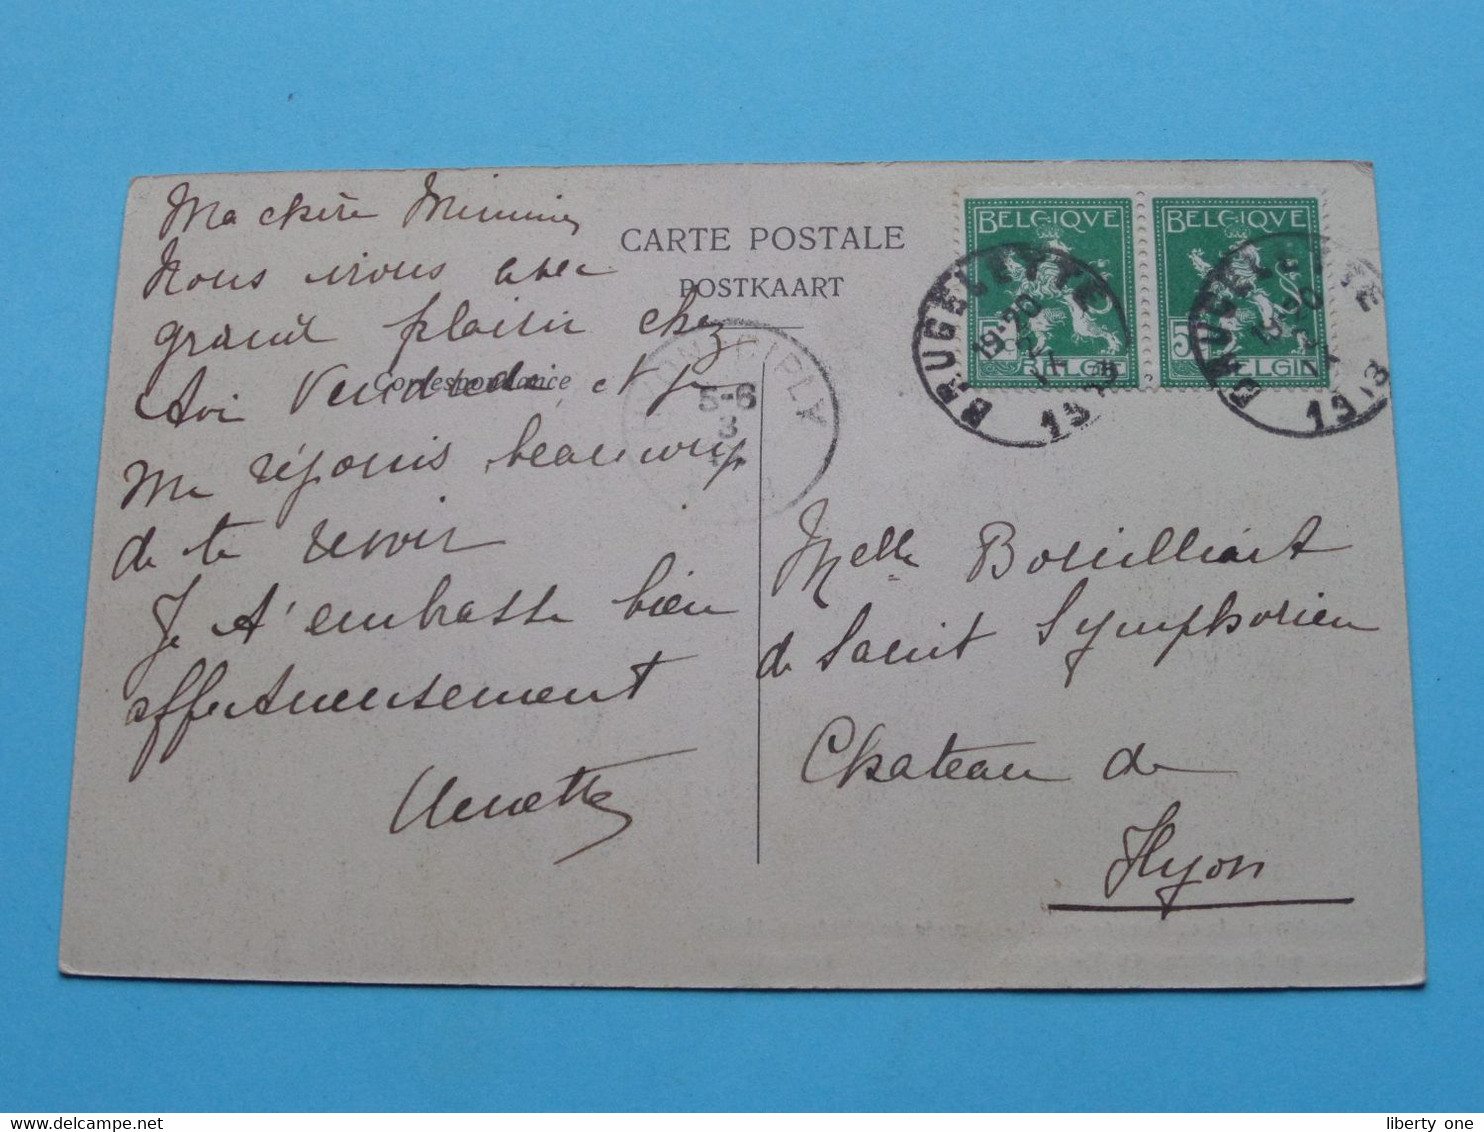 Ma chère Mimine
Nous irons avec
grand plaisir chez
toi Vendredi et je
me réjouis beaucoup
de te revoir
Je t'embrasse bien
affectueusement
CARTE POSTALE
POSTKAART
Correspondance
CIPLY
5-6
BELGIQUE
BELGIË
BRUGELETTE
19-20
1913
BELGIQUE
5
BELGIË
BRUGELETTE
19-20
1913
Melle Bouilliart
de Saint Symphorien
Chateau de
Hyon
liberty one